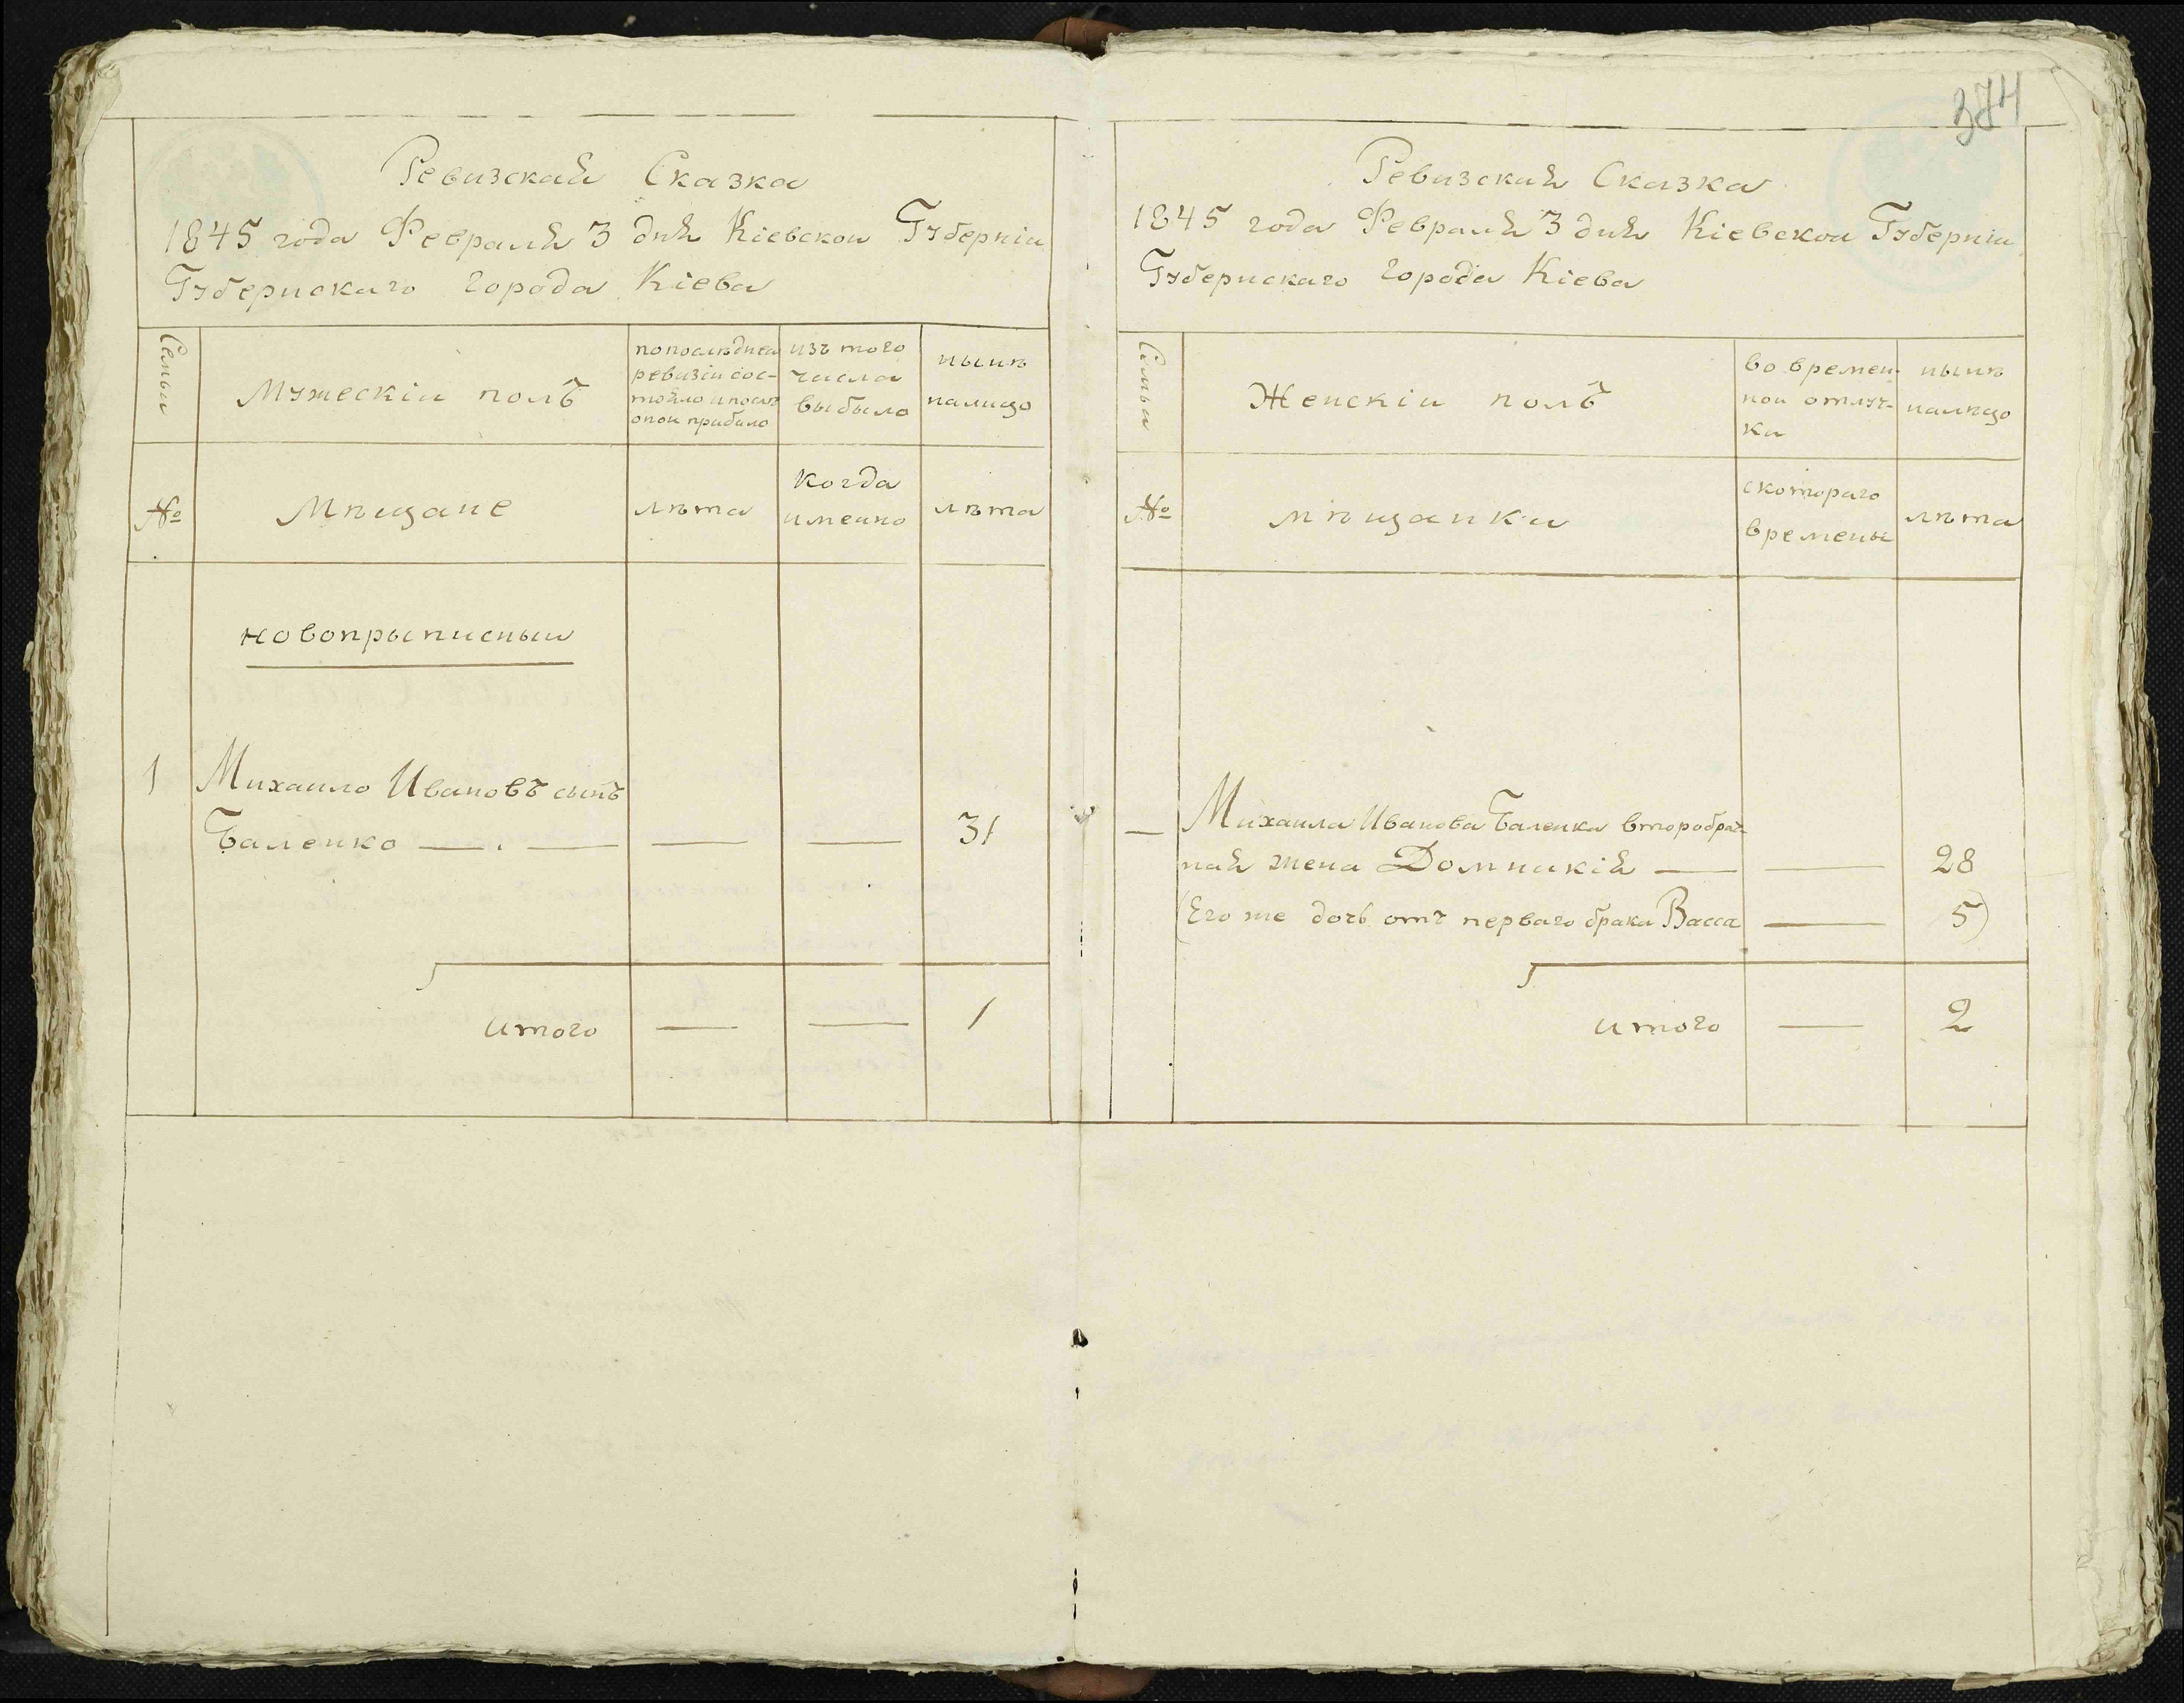 374
Ревизская Сказка
1845 года Февраля 3 дня Кіевской Губерніи
Губернскаго города Кіева
Семьи
Мужескій полъ
по последней
ревизіи сос-
тояло и послѣ
оной прибыло
изъ того
числа
выбыло
нынѣ
налицо
№
Мѣщане
лѣта
когда
именно
лѣта
новопрыписный
1 Михайло Ивановъ сынъ
Баленко — — — — 31
итого — — 1
Ревизская Сказка
1845 года Февраля 3 дня Кіевской Губерніи
Губернскаго города Кіева
Семьи
Женскій полъ
во времен-
ной отлуч-
ки
нынѣ
налицо
№
мѣщанки
скотораго
времены
лѣта
— Михаила Иванова Баленка второбрач-
ная жена Домникія — — 28
(Его же дочь отъ перваго брака Васса — 5)
итого — 2